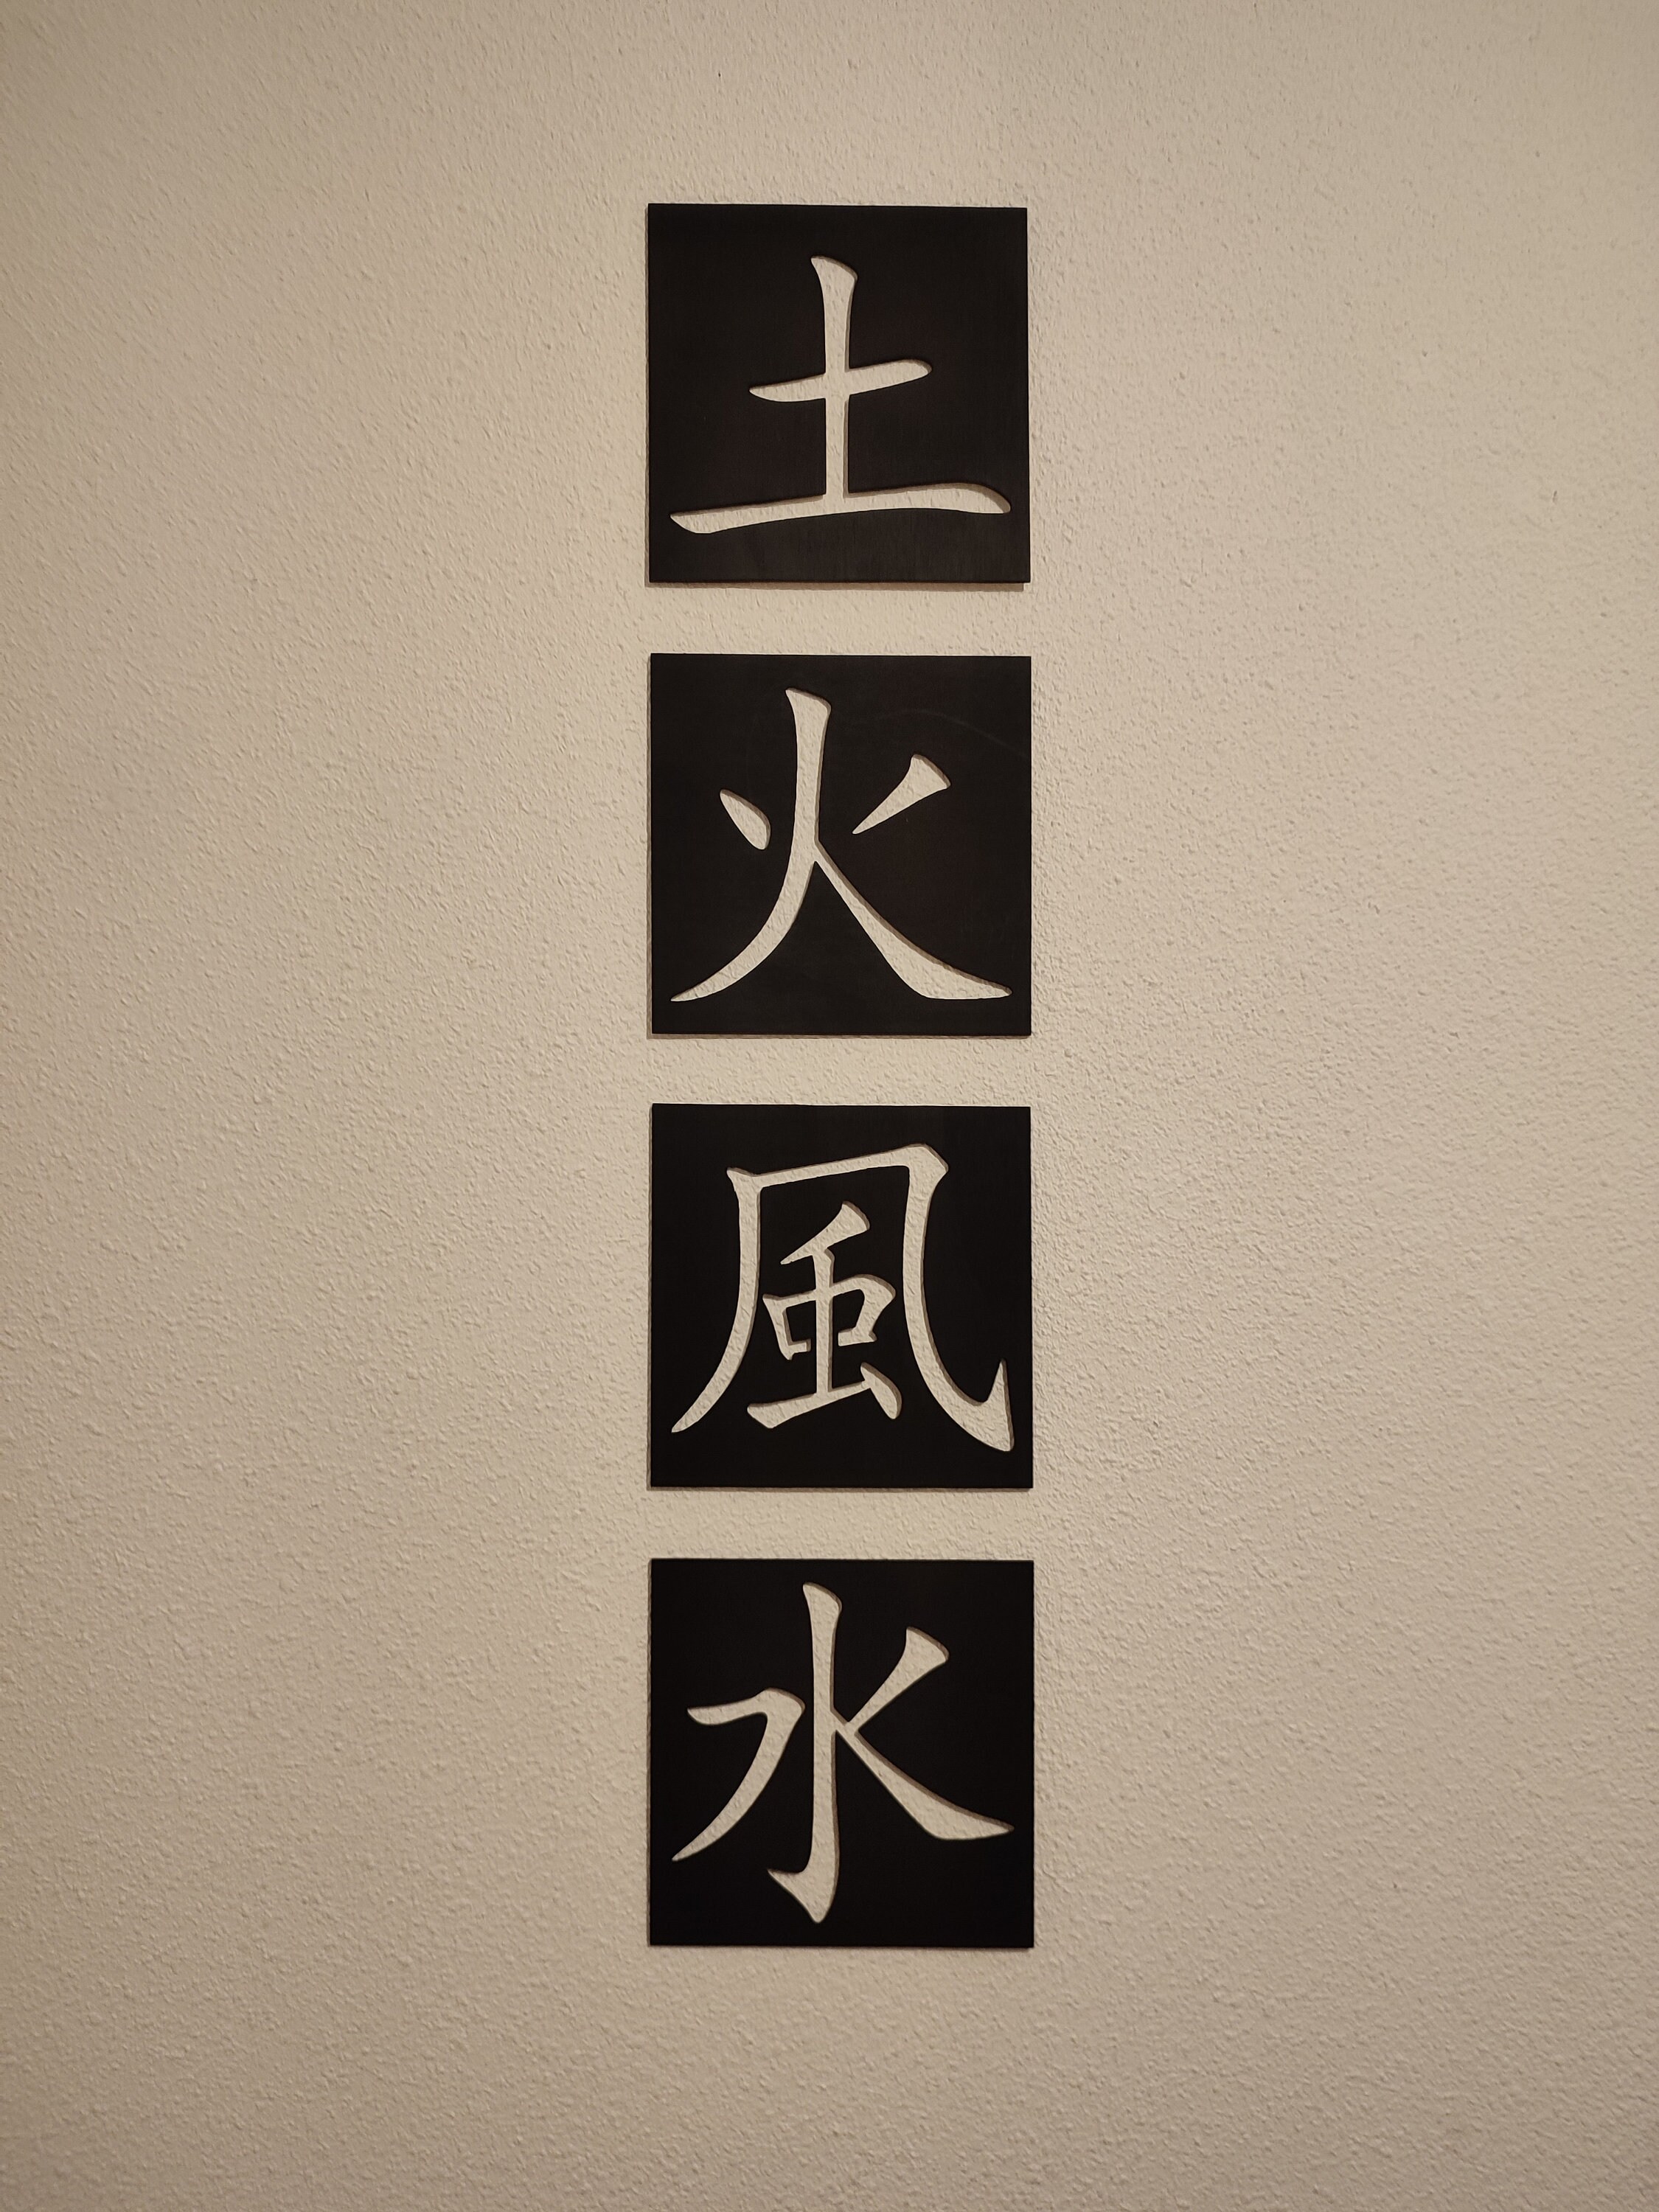 土
火
風
水